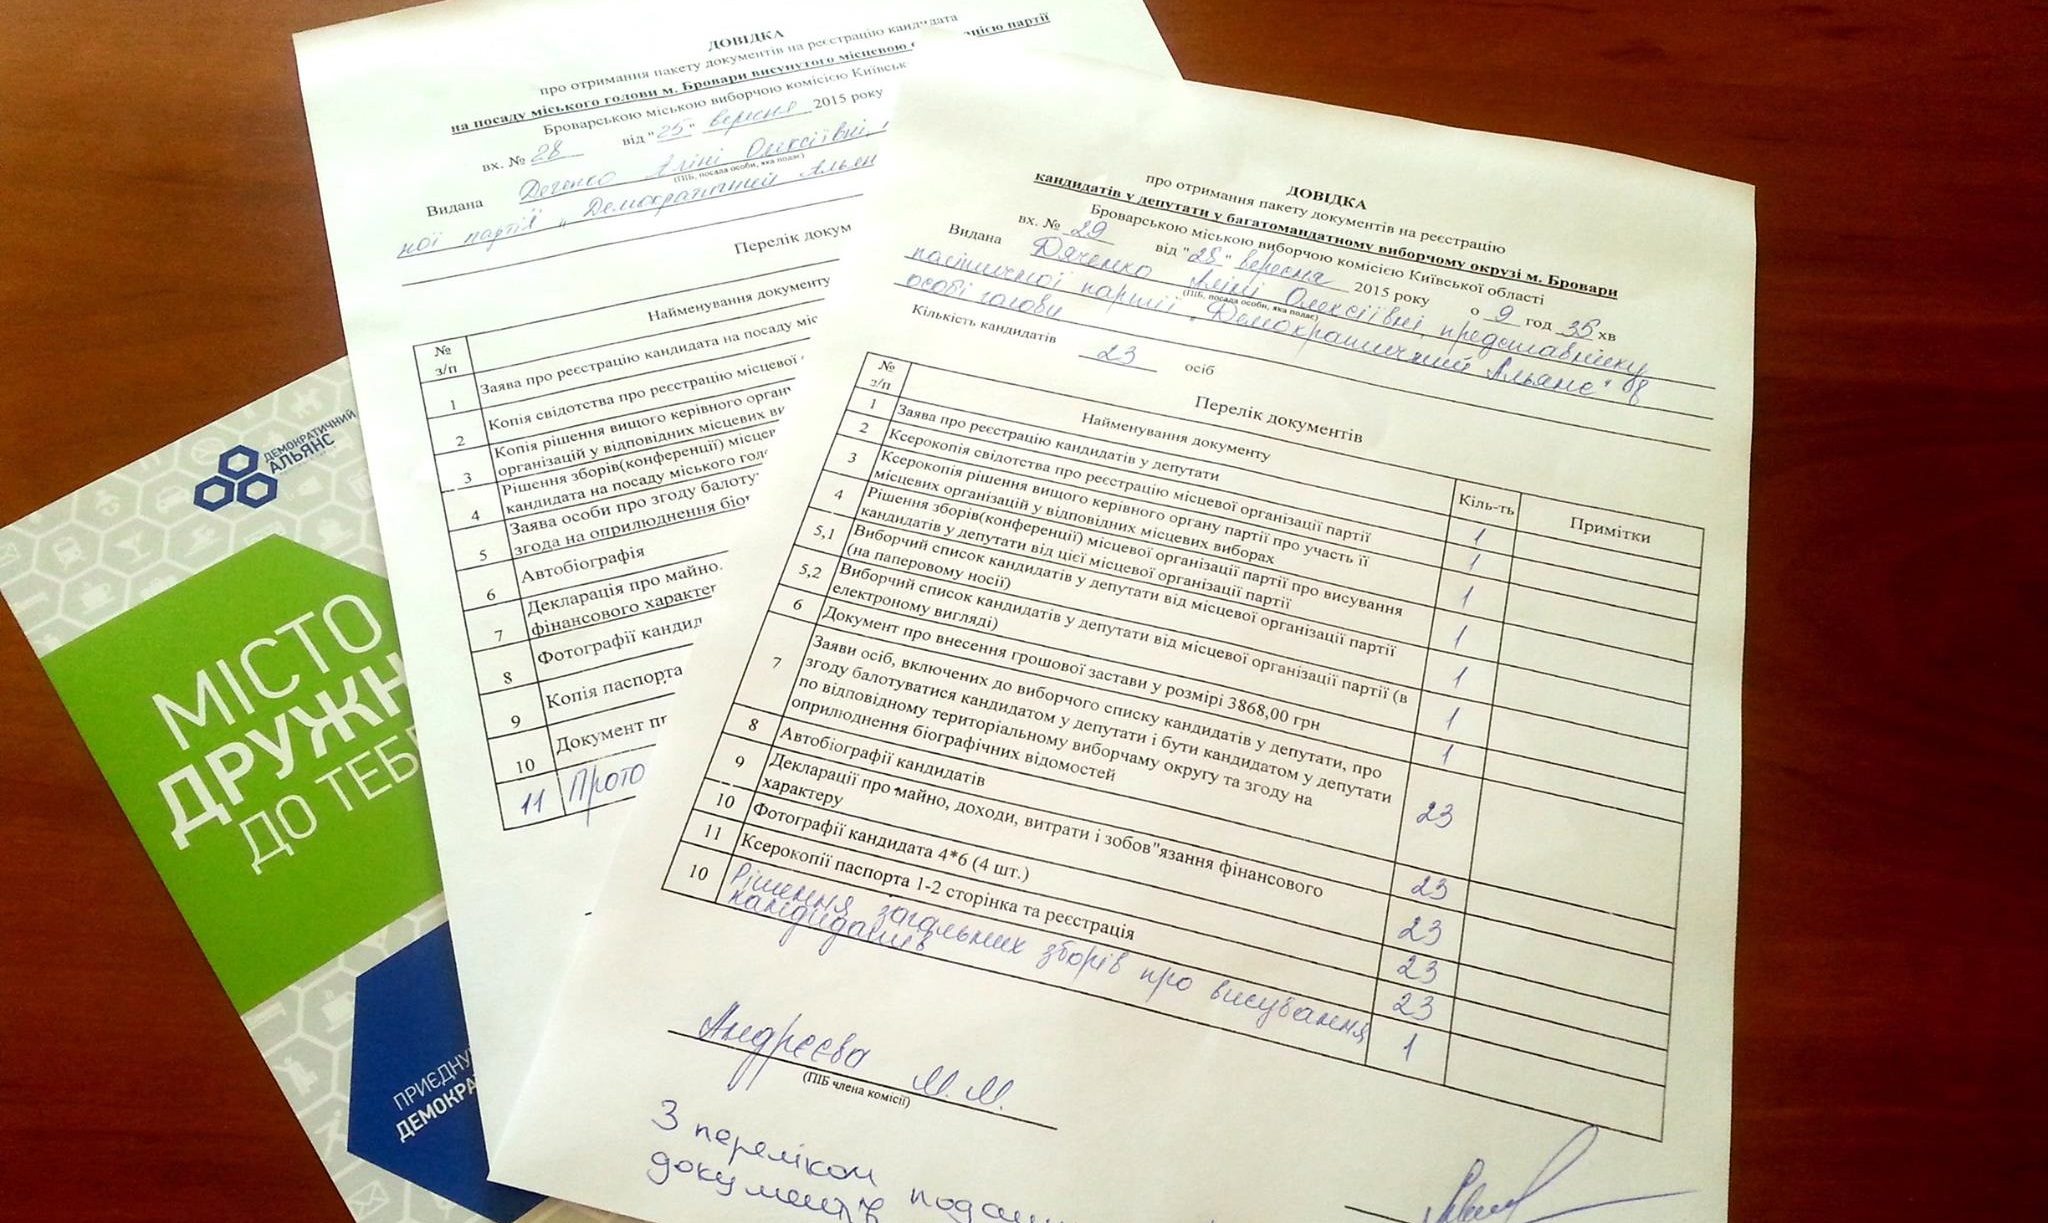 ДОВІДКА
про отримання пакету документів на реєстрацію кандидата
на посаду міського голови м. Бровари висунутого місцевою
Броварською міською виборчою комісією Київськ
вх. № 28 від "25" вересня 2015 року
Видана Аліні Олексіївні
(ПІБ, посада особи, яка подає)
ної партії „Демократичний Альян
Перелік докум
№ з/п Найменування документу
1 Заява про реєстрацію кандидата на посаду міс
2 Копія свідотства про реєстрацію місцевої
3 Копія рішення вищого керівного орган
організацій у відповідних місцевих ви
4 Рішення зборів(конференції) місцев
кандидата на посаду міського гол
5 Заява особи про згоду балоту
згода на оприлюднення біог
6 Автобіографія
7 Декларація про майно.
фінансового характер
8 Фотографії кандид
9 Копія паспорта
10 Документ пр
11 Прото
ДОВІДКА
про отримання пакету документів на реєстрацію
кандидатів у депутати у багатомандатному виборчому окрузі м. Бровари
Броварською міською виборчою комісією Київської області
вх. № 29 від "28" вересня 2015 року о 9 год 35 хв
Видана Дяченко Аліні Олексіївні представнику
(ПІБ, посада особи, яка подає)
політичної партії „Демократичний Альянс" в
особі голови
Кількість кандидатів 23 осіб
Перелік документів
№ з/п Найменування документу Кіль-ть Примітки
1 Заява про реєстрацію кандидатів у депутати 1
2 Ксерокопія свідотства про реєстрацію місцевої організації партії 1
3 Ксерокопія рішення вищого керівного органу партії про участь її
місцевих організацій у відповідних місцевих виборах 1
4 Рішення зборів(конференції) місцевої організації партії про висування
кандидатів у депутати від цієї місцевої організації партії 1
5,1 Виборчий список кандидатів у депутати від місцевої організації партії
(на паперовому носії) 1
5,2 Виборчий список кандидатів у депутати від місцевої організації партії (в
електроному вигляді) 1
6 Документ про внесення грошової застави у розмірі 3868,00 грн 1
7 Заяви осіб, включених до виборчого списку кандидатів у депутати, про
згоду балотуватися кандидатом у депутати і бути кандидатом у депутати
по відповідному територіальному виборчому округу та згоду на
оприлюднення біографічних відомостей 23
8 Автобіографії кандидатів 23
9 Декларації про майно, доходи, витрати і зобов"язання фінансового
характеру 23
10 Фотографії кандидата 4*6 (4 шт.) 23
11 Ксерокопії паспорта 1-2 сторінка та реєстрація 23
10 Рішення загальних зборів про висування
кандидатів 1
Андрєєва М.М.
(ПІБ члена комісії)
З переліком
документів
ДЕМОКРАТИЧНИЙ
АЛЬЯНС
МІСТО
ДРУЖН
ДО ТЕБ
ПРИЄДНУ
ДЕМОКРА